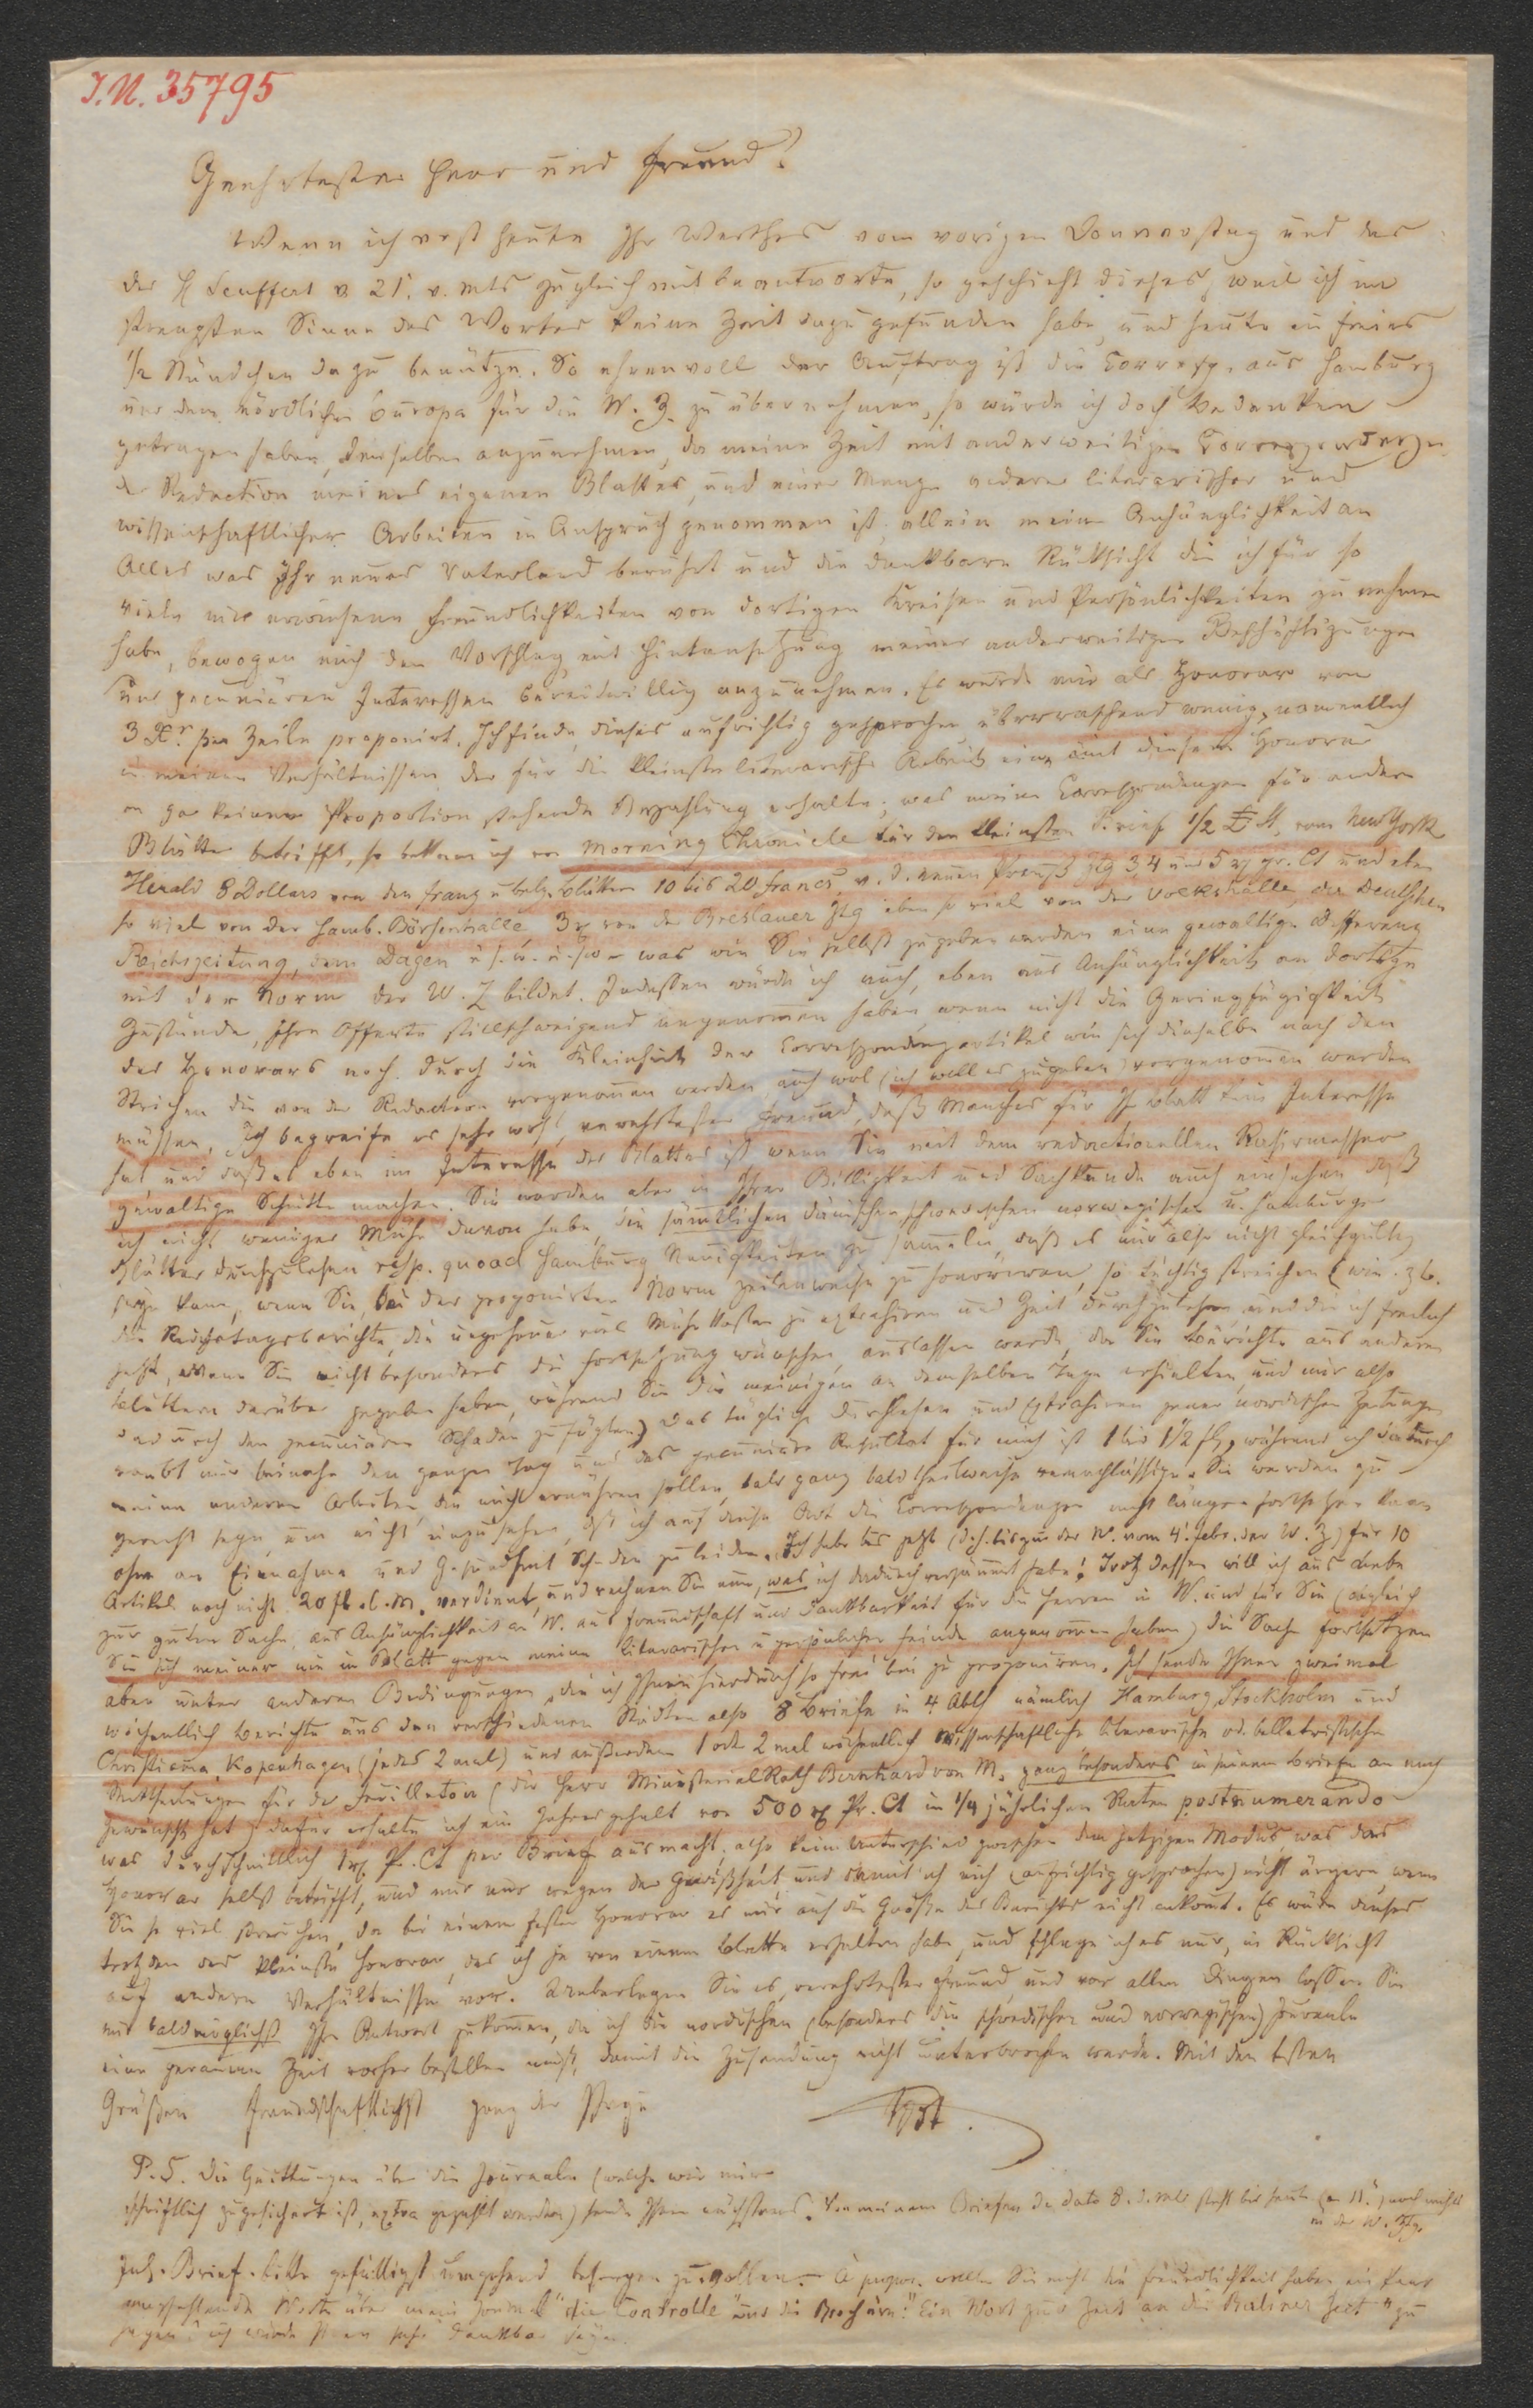 I.N. 35795
Geehrtester Herr und Freund!
Wenn ich erst heute Ihr Werthes vom vorigen Donnerstag und das
des H Seuffert v. 21. v. Mts zugleich mit beantworte, so geschieht dieses, weil ich im
strengsten Sinne des Wortes keine Zeit dazu gefunden habe und heute ein freies
1/2 Stündchen dazu benütze. So ehrenvoll der Auftrag ist die Corresp. aus Hamburg
und dem nördlichen Europa für die W. Z. zu übernehmen, so würde ich doch Bedenken
getragen haben, denselben anzunehmen, da meine Zeit mit anderweitigen Correspondenzen
der Redaction meines eigenen Blattes, und einer Menge anderer literarischer und
wissenschaftlicher Arbeiten in Anspruch genommen ist, allein meine Anhänglichkeit an
Alles was Ihr neues Vaterland berührt und die dankbare Rücksicht die ich für so
viele mir erwiesene Freundlichkeiten von dortigen Kreisen und Persönlichkeiten zu nehmen
habe, bewogen mich den Vorschlag mit Hintansetzung meiner anderweitigen Beschäftigungen
und pecuniären Interessen bereitwillig anzunehmen. Es wurde mir als Honorar von
3 Xr. per Zeile proponirt. Ich finde, dieses aufrichtig gesprochen überraschend wenig, namentlich
in meinen Verhältnissen, der für die kleinste literarische Arbeit eine mit diesem Honorar
in gar keiner Proportion stehende Bezahlung erhalte; was meine Correspondenzen für andere
Blätter betrifft, so bekomme ich von Morning Chronicle für den kleinsten Brief 1/2 £ St, vom New York
Herald 8 Dollars von den franz u belg. Blättern 10 bis 20 francs, v. d. neuen Preuß Ztg 3, 4 und 5 rf pr. Ct und eben
so viel von der Hamb. Börsenhalle, 3 rf von der Breslauer Ztg eben so viel von der Volkshalle, der Deutschen
Reichszeitung, dem Dagen u.s.w. u.s.w. was wie Sie selbst zugeben werden eine gewaltige Differenz
mit der Norm der W. Z bildet. Indessen würde ich auch, eben aus Anhänglichkeit an dortige
Zustände, Ihre Offerte stillschweigend angenommen haben, wenn nicht die Geringfügigkeit
des Honorars noch durch die Kleinheit der Correspondenzartikel wie sich dieselbe nach den
Strichen die von der Redaction vorgenommen werden, auch wol (ich will es zugeben) vorgenommen werden
müssen, Ich begreife es sehr wohl, verehrtester Freund, daß Manches für Ihr Blatt kein Interesse
hat und daß es eben im Interesse des Blattes ist wenn Sie mit dem redactionellen Rasirmesser
gewaltige Schnitte machen. Sie werden aber in Ihrer Billigkeit und Sachkunde auch einsehen daß
ich nicht weniger Mühe davon habe, die sämtlichen dänischen schwedischen norwegischen u. Hamburger
Blätter durchzulesen resp. quoad Hamburg Neuigkeiten zu sammeln, daß es mir also nicht gleichgültig
seyn kann, wenn Sie, bei der proponirten Norm zeilenweise zu honoriren, so tüchtig streichen (wie z.b.
die Reichstagsberichte, die ungeheuer viel Mühe kosten zu extrahiren und Zeit durchzulesen, und die ich freilich
jetzt, wenn Sie nicht besonders die Fortsetzung wünschen, auslassen werde, da Sie Berichte aus andern
Blättern darüber gegeben haben, während Sie die meinigen an demselben Tage erhielten, und mir also
dadurch den pecuniären Schaden zufügten) Das tägliche Durchlesen und Extrahiren jener nordischen Zeitungen
raubt mir beinahe den ganzen Tag und das pecuniäre Resultat für mich ist 1 bis 1 1/2 fl, während ich dadurch
meine anderen Arbeiten, die mich ernähren sollen, bald ganz bald theilweise vernachlässige. Sie werden zu
gerecht seyn, um nicht einzusehen, daß ich auf diese Art die Correspondenzen nicht länger fortsetzen kann
ohne an Einnahme und Gesundheit Schaden zu leiden. Ich habe bis jetzt (d.h. bis zu der N. vom 4. Febr. der W. Z) für 10
Artikel noch nicht 20 fl C.M. verdient, und rechnen Sie nun, was ich dadurch versäumt habe! Trotz dessen will ich aus Liebe
zur guten Sache, aus Anhänglichkeit an W. aus Freundschaft und Dankbarkeit für die Herren in W. und für Sie (obgleich
Sie sich meiner nie im Blatt gegen meine literarischen u persönlichen Feinde angenommen haben) die Sache fortsetzen
aber unter anderen Bedingungen, die ich Ihnen hierdurch so frei bin zu proponiren. Ich sende Ihnen zweimal
wöchentlich Berichte aus den verschiedenen Städten also 8 Briefe in 4 Abth nämlich Hamburg, Stockholm und
Christiania, Kopenhagen (jedes 2 mal) und außerdem 1 oder 2 mal wöchentlich wissenschaftliche literarische od. belletristische
Mittheilungen für das Feuilleton (die Herr MinisterialRath Bernhard von M. ganz besonders in seinem Briefe an mich
gewünscht hat) dafür erhalte ich ein Jahresgehalt von 500 rf Pr. Ct in 1/4 jährlichen Raten postnumerando
was durchschnittlich 1 rf. Pr. Ct per Brief ausmacht, also kein Unterschied zwischen dem jetzigen Modus was das
Honorar selbst betrifft, und mir nur wegen der Gewißheit und damit ich mich (aufrichtig gesprochen) nicht ärgere, wenn
Sie so viel streichen, da bei einem festen Honorar es mir auf die Größe des Berichts nicht ankomt. Es wäre dieses
trotzdem das kleinste Honorar, das ich je von einem Blatte erhalten habe, und schlage ich es nur, in Rücksicht
auf andere Verhältnisse vor. Ueberlegen Sie es, verehrtester Freund, und vor allen Dingen lassen Sie
mir baldmöglichst Ihre Antwort zukommen, da ich die nordischen (besonders die schwedischen und norwegischen) Journale
eine geraume Zeit vorher bestellen muß, damit die Zusendung nicht unterbrochen werde. Mit den besten
Grüßen freundschaftlichst ganz der Ihrige
P.S. Die Quittungen über die Journale (welche wie mir
schriftlich zugesichert ist, extra gezahlt werden) sende Ihnen nächstens. Von meinen Briefen de dato 8. d. Mts steht bis heute (den 11.) noch nichts
in der W. Ztg.
Inl. Brief bitte gefälligst umgehend besorgen zu wollen. – À propos. wollen Sie nicht die Freundlichkeit haben, ein paar
empfehlende Worte über mein Journal "die Controlle" und die Brochüre: "Ein Wort zur Zeit an die Berliner Zeit" zu
sagen? ich würde Ihnen sehr dankbar seyn.